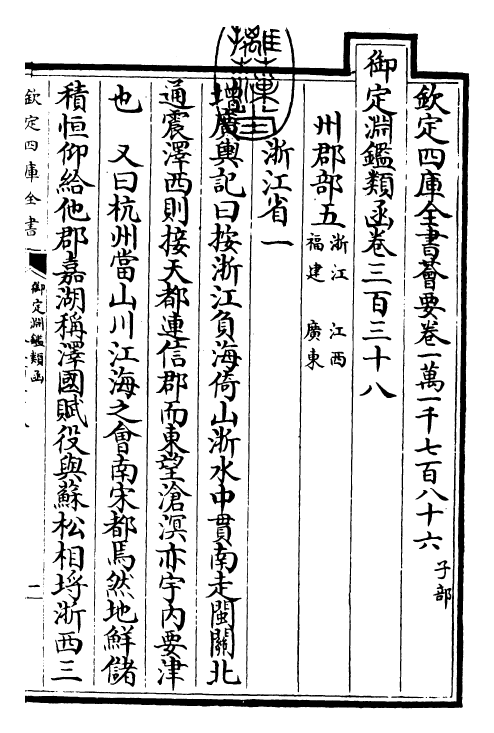 欽定四庫全書薈要卷一萬一千七百八十六 子部
御定淵鑑類函卷三百三十八
州郡部五 浙江 江西 福建 廣東
浙江省一
增廣輿記曰按浙江負海倚山浙水中貫南走閩關北
通震澤西則接天都連信郡而東望滄溟亦宇內要津
也 又曰杭州當山川江海之會南宋都焉然地鮮儲
積恒仰給他郡嘉湖稱澤國賦役與蘇松相埒浙西三
欽定四庫全書
御定淵鑑類函